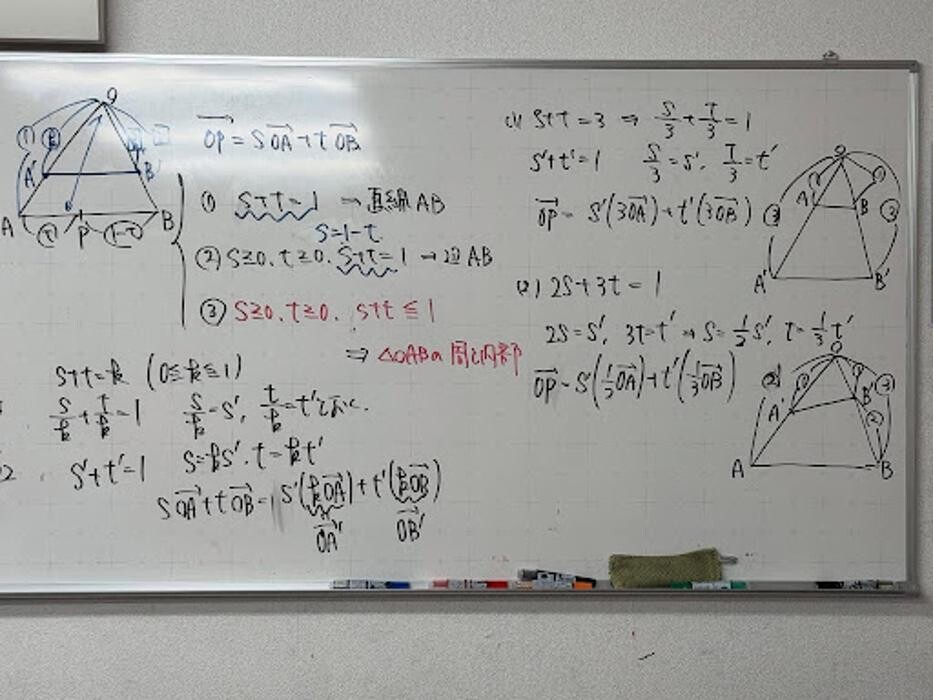 O
A'
B'
A
B
t
P
1-t
OP = sOA + tOB
① s+t=1 → 直線AB
s=1-t
② s≧0. t≧0. s+t=1 → 辺AB
③ s≧0. t≧0. s+t≦1
⇒ △OABの周と内部
s+t=k (0≦k≦1)
s/k + t/k = 1 s/k = s', t/k = t'とおく.
s'+t'=1 s=ks'. t=kt'
sOA+tOB = s'(kOA)+t'(kOB)
OA' OB'
(1) s+t=3 ⇒ s/3 + t/3 = 1
s'+t'=1 s/3 = s', t/3 = t'
OP = s'(3OA)+t'(3OB)
O
A
B
A'
B'
(2) 2s+3t=1
2s=s', 3t=t' → s=1/2 s', t=1/3 t'
OP = s'(1/2 OA)+t'(1/3 OB)
O
A'
B'
A
B